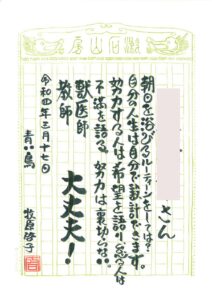 漱石山房
さん
朝日を浴びるルーティーンをしては?
自分の人生は自分で設計できます。
努力する人は希望を語り、怠る人は
不満を語る。努力は裏切らない。
獣医師
教師
大丈夫!
令和四年三月十七日
青い鳥